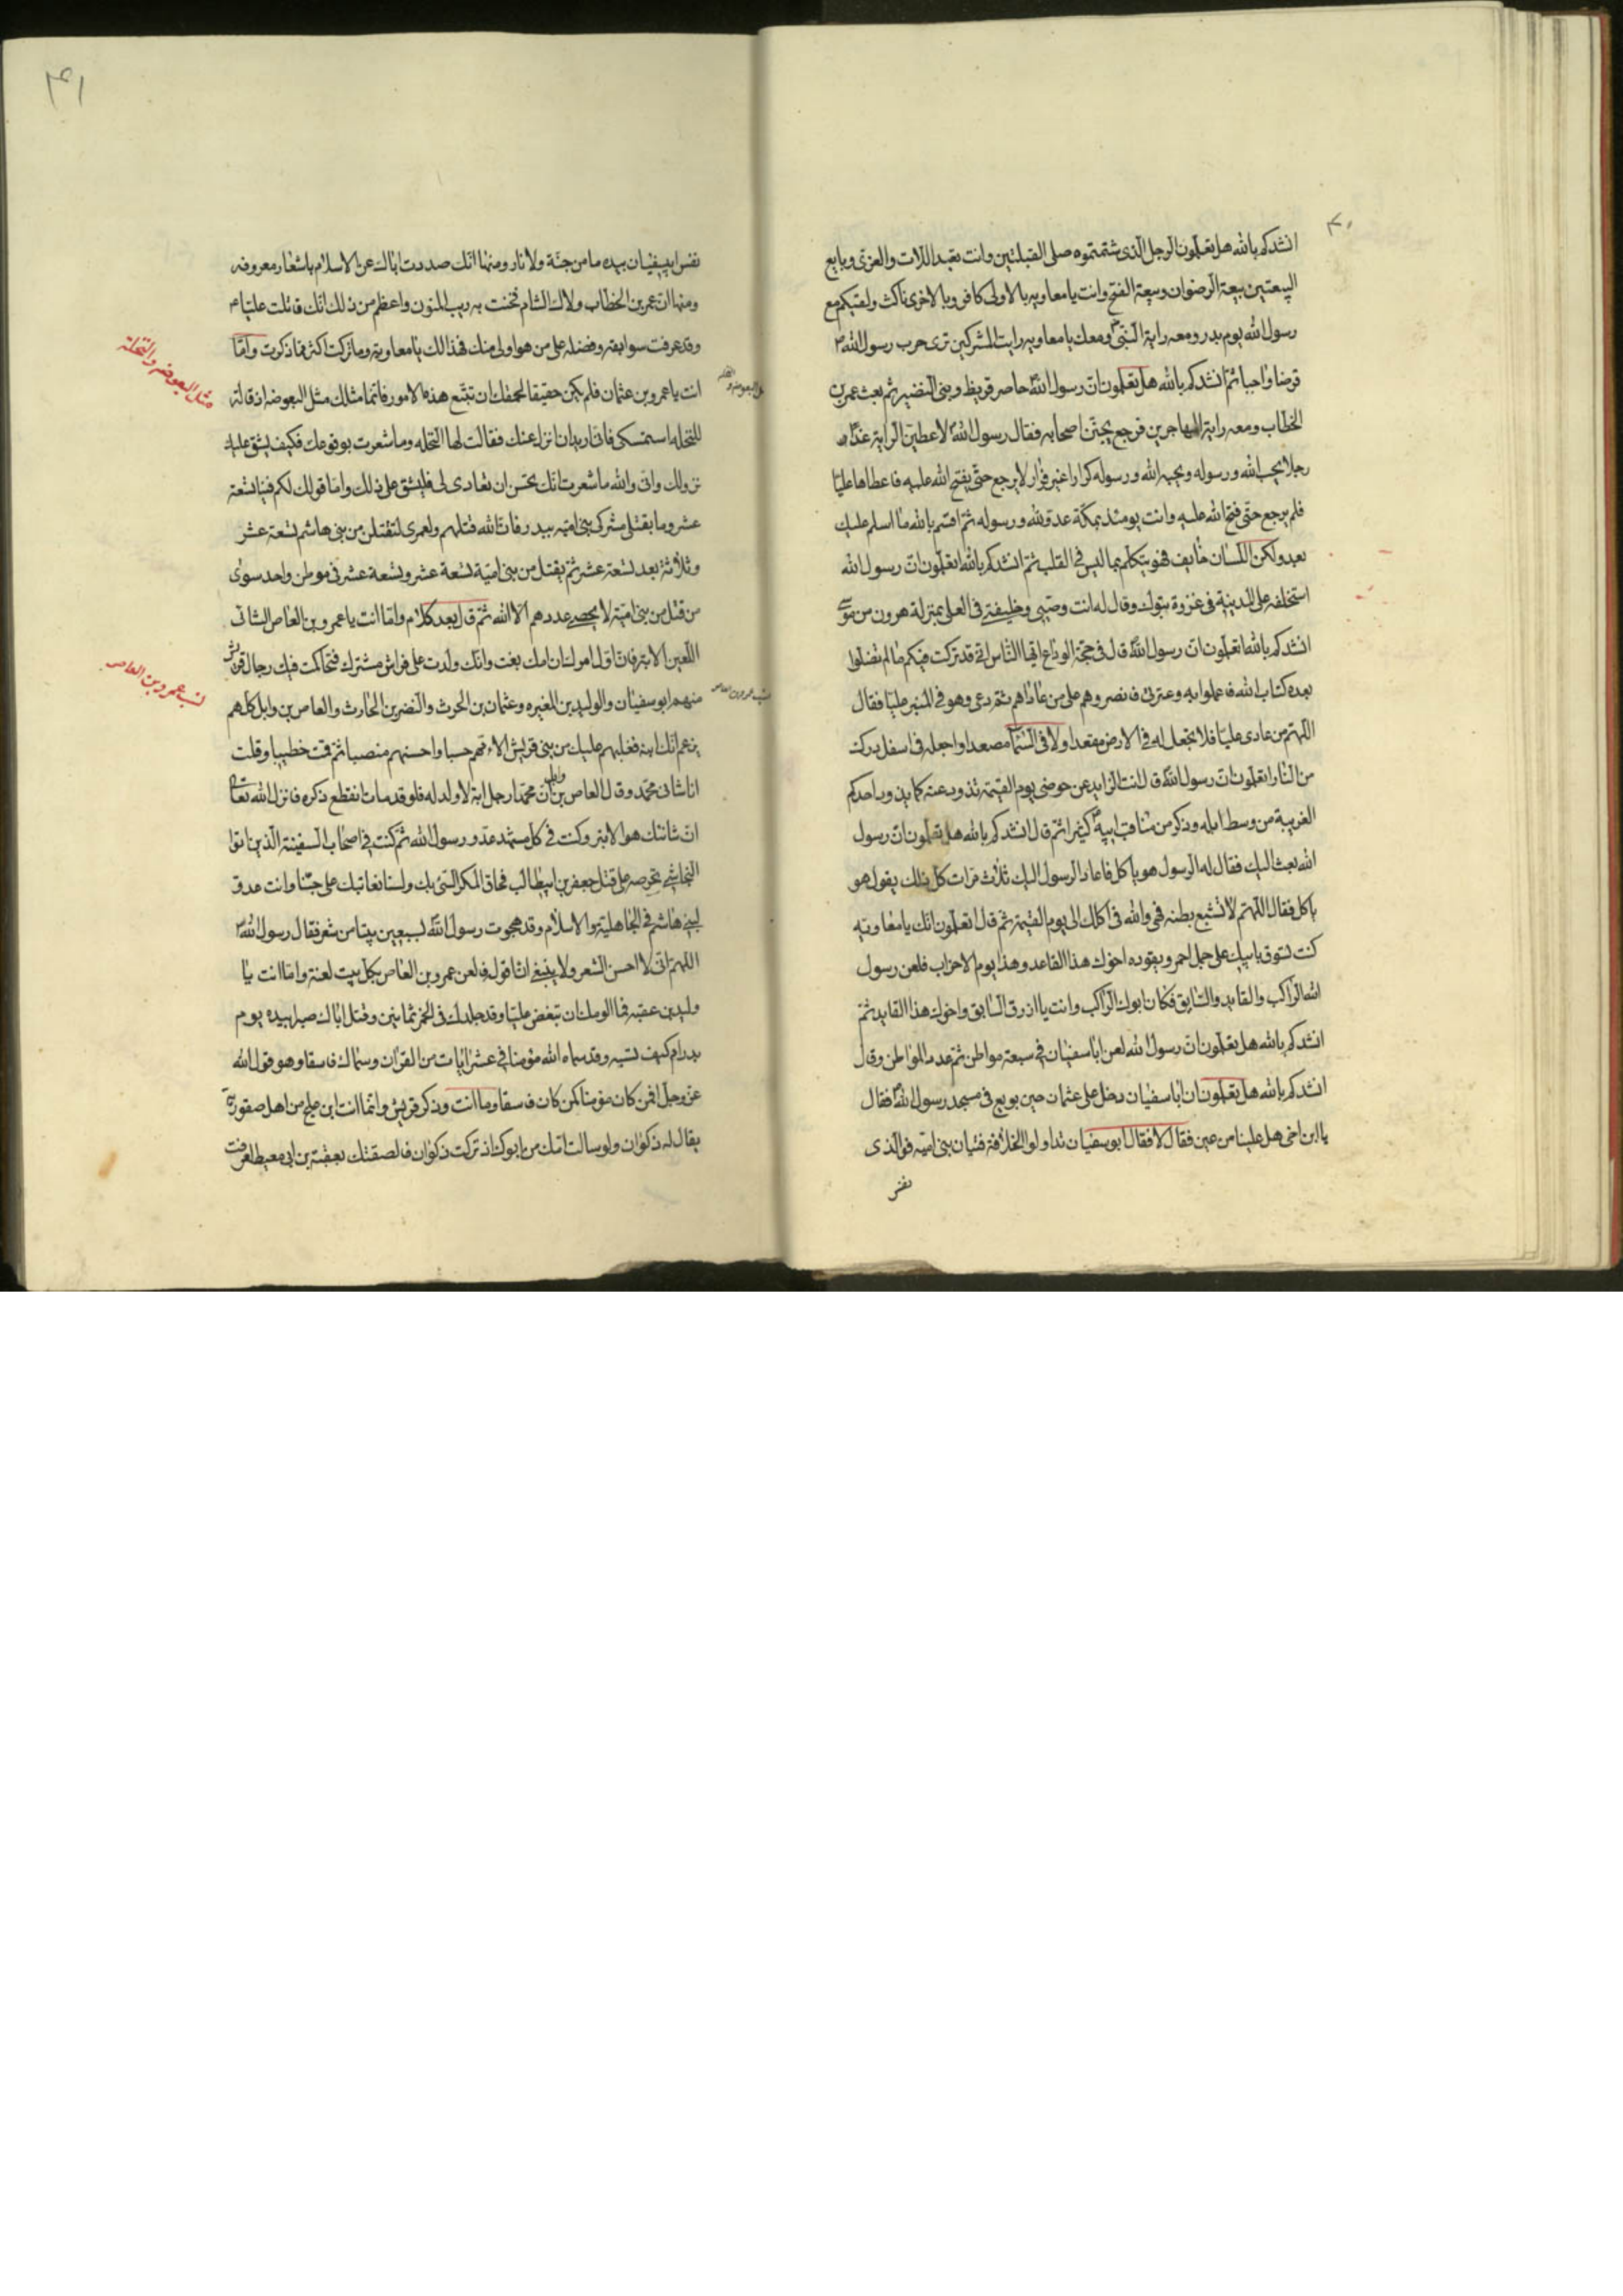 ٤٠
انشدكم بالله هل تعلمون الرجل الذى شتمتموه صلى القبلتين وانت تعبد اللات والعزى وبايع
البيعتين بيعة الرضوان وبيعة الفتح وانت يا معاويه بالاولى كافر وبالاخرى ناكث ولقيكم مع
رسول الله يوم بدر ومعه راية النبى ومعك يا معاويه راية المشركين ترى حرب رسول الله
فرضا واجبا ثم انشدكم بالله هل تعلمون ان رسول الله حاصر قريظه وبنى النضير ثم بعث عمر بن
الخطاب ومعه راية المهاجرين فرجع يجبن اصحابه فقال رسول الله لاعطين الراية غدا
رجلا يحب الله ورسوله ويحبه الله ورسوله كرارا غير فرار لا يرجع حتى يفتح الله عليه فاعطاها عليا
فلم يرجع حتى فتح الله عليه وانت يومئذ بمكة عدو لله ورسوله ثم اقسم بالله ما اسلم عليك
بعد ولكن اللسان خايف فهو يتكلم بما ليس فى القلب ثم انشدكم بالله اتعلمون ان رسول الله
استخلفه على المدينة فى غزوة تبوك وقال له انت وصيى وخليفتى فى العلى بمنزلة هرون من موسى
انشدكم بالله اتعلمون ان رسول الله قال فى حجة الوداع ايها الناس انى قد تركت فيكم ما لم تضلوا
بعده كتاب الله فاعملوا به وعترتى فانصروهم على من عاداهم ثم دعى وهو فى المنبر عليا فقال
اللهم من عادى عليا فلا تجعل له فى الارض مقعدا ولا فى السماء مصعدا واجعله فى اسفل درك
من النار اتعلمون ان رسول الله قال انت الزايد عن حوضى يوم القيمة تذود عنه كما يذود احدكم
الغريبة من وسط ابله وذكر من مناقب ابيه كثيرا ثم قال انشدكم بالله هل تعلمون ان رسول
الله بعث اليك فقال له الرسول هو ياكل فاعاد الرسول اليك ثلاث مرات كل ذلك يقول هو
ياكل فقال اللهم لا تشبع بطنه فهى والله فى اكلك الى يوم القيمة ثم قال اتعلمون انك يا معاوية
كنت تسوق بابيك على جمل احمر ويقوده اخوك هذا القاعد وهذا يوم الاحزاب فلعن رسول
الله الراكب والقايد والسايق فكان ابوك الراكب وانت يا ازرق السابق واخوك هذا القايد ثم
انشدكم بالله هل تعلمون ان رسول الله لعن ابا سفيان فى سبعة مواطن ثم عد المواطن وقال
انشدكم بالله هل تعلمون ان ابا سفيان دخل على عثمان حين بويع فى مسجد رسول الله فقال
يا ابن اخى هل علينا من عين فقال لا فقال ابو سفيان تداولوا الخلافة فتيان بنى امية فوالذى
نفس
٤١
نفس ابيسفيان بيده ما من جنة ولا نار ومنها انك صددت اباك عن الاسلام باشعار معروفه
ومنها ان عمر بن الخطاب ولاك الشام فخنت به ريب المنون واعظم من ذلك انك قاتلت عليا
وقد عرفت سوابقه وفضله على من هو اولى منك فهذا لك يا معاوية وما تركت اكثر مما ذكرت واما
انت يا عمرو بن عثمان فلم يكن حقيقا لحمقك ان تتبع هذه الامور فانما مثلك مثل البعوضه اذ قالت
للنخله استمسكى فانى اريد ان انزل عنك فقالت لها النخله وما شعرت بوقوعك فكيف يشق على
نزولك وانى والله ما شعرت انك تحسن ان تعادى لى فليشق على ذلك واما قولك لكم فينا تسعة
عشر وما بقتلى مشركى بنى اميه ببدر فان الله قتلهم ولعمرى لتقتلن من بنى هاشم تسعة عشر
وثلاثة بعد تسعة عشر ثم يقتل من بنى امية تسعة عشر وتسعة عشر فى موطن واحد سوى
من قتل من بنى امية لا يحصى عددهم الا الله ثم قال بعد كلام واما انت يا عمرو بن العاص الشانى
اللعين الابتر فان اول امرك ان امك بغت وانك ولدت على فراش مشترك فتحاكمت فيك رجال قريش
منهم ابو سفيان والوليد بن المغيره وعثمان بن الحرث والنضر بن الحارث والعاص بن وايل كلهم
يزعم انك ابنه فغلبهم عليك من بنى قريش الامهم حسبا واحسنهم منصبا ثم قمت خطيبا وقلت
انا شانى محمد وقال العاص بن وايل ان محمدا رجل ابتر لا ولد له فلو قد مات انقطع ذكره فانزل الله تعالى
ان شانئك هو الابتر وكنت فى كل مشهد عدو رسول الله ثم كنت فى اصحاب السفينة الذين اتوا
النجاشى تحرصه على قتل جعفر بن ابيطالب فحاق المكر السىء بك ولسنا نعاتبك على حبنا وانت عدو
لبنى هاشم فى الجاهلية والاسلام وقد هجوت رسول الله بسبعين بيتا من شعر فقال رسول الله
اللهم انى لا احسن الشعر ولا ينبغى ان اقوله فالعن عمرو بن العاص بكل بيت لعنة واما انت يا
وليد بن عقبه فما الومك ان تبغض عليا وقد جلدك فى الخمر ثمانين وقتل اباك صبرا بيده يوم
بدر ام كيف تسبه وقد سماه الله مؤمنا فى عشر ايات من القران وسماك فاسقا وهو قول الله
عز وجل افمن كان مؤمنا كمن كان فاسقا وما انت وذكر قريش وانما انت ابن علج من اهل صفورية
يقال له ذكوان ولو سالت امك من ابوك اذ تركت ذكوان فالصقتك بعقبة بن ابى معيط
مثل البعوضه والنخلة
نسب عمرو بن العاص
نسب عمرو بن العاص